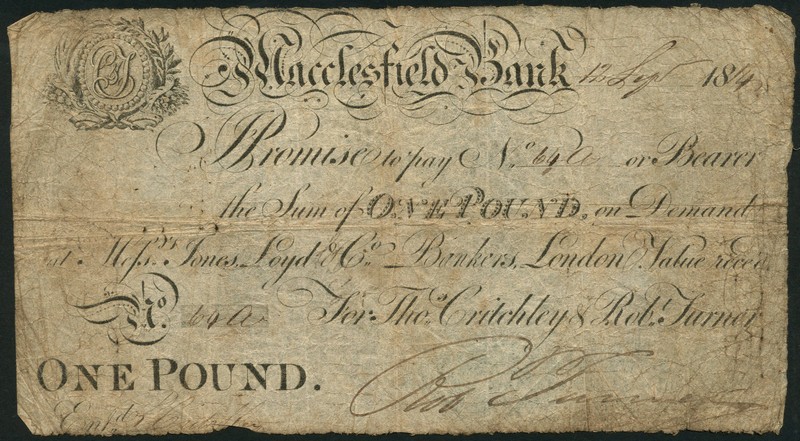 Macclesfield Bank 12 Sept 1814
I Promise to pay No. 64 A or Bearer
the Sum of ONE POUND, on Demand
at Messrs. Jones, Loyd & Co. Bankers, London Value reced.
No. 64 A For Thos. Critchley & Robt. Turner
ONE POUND. Robt Turner
Entd